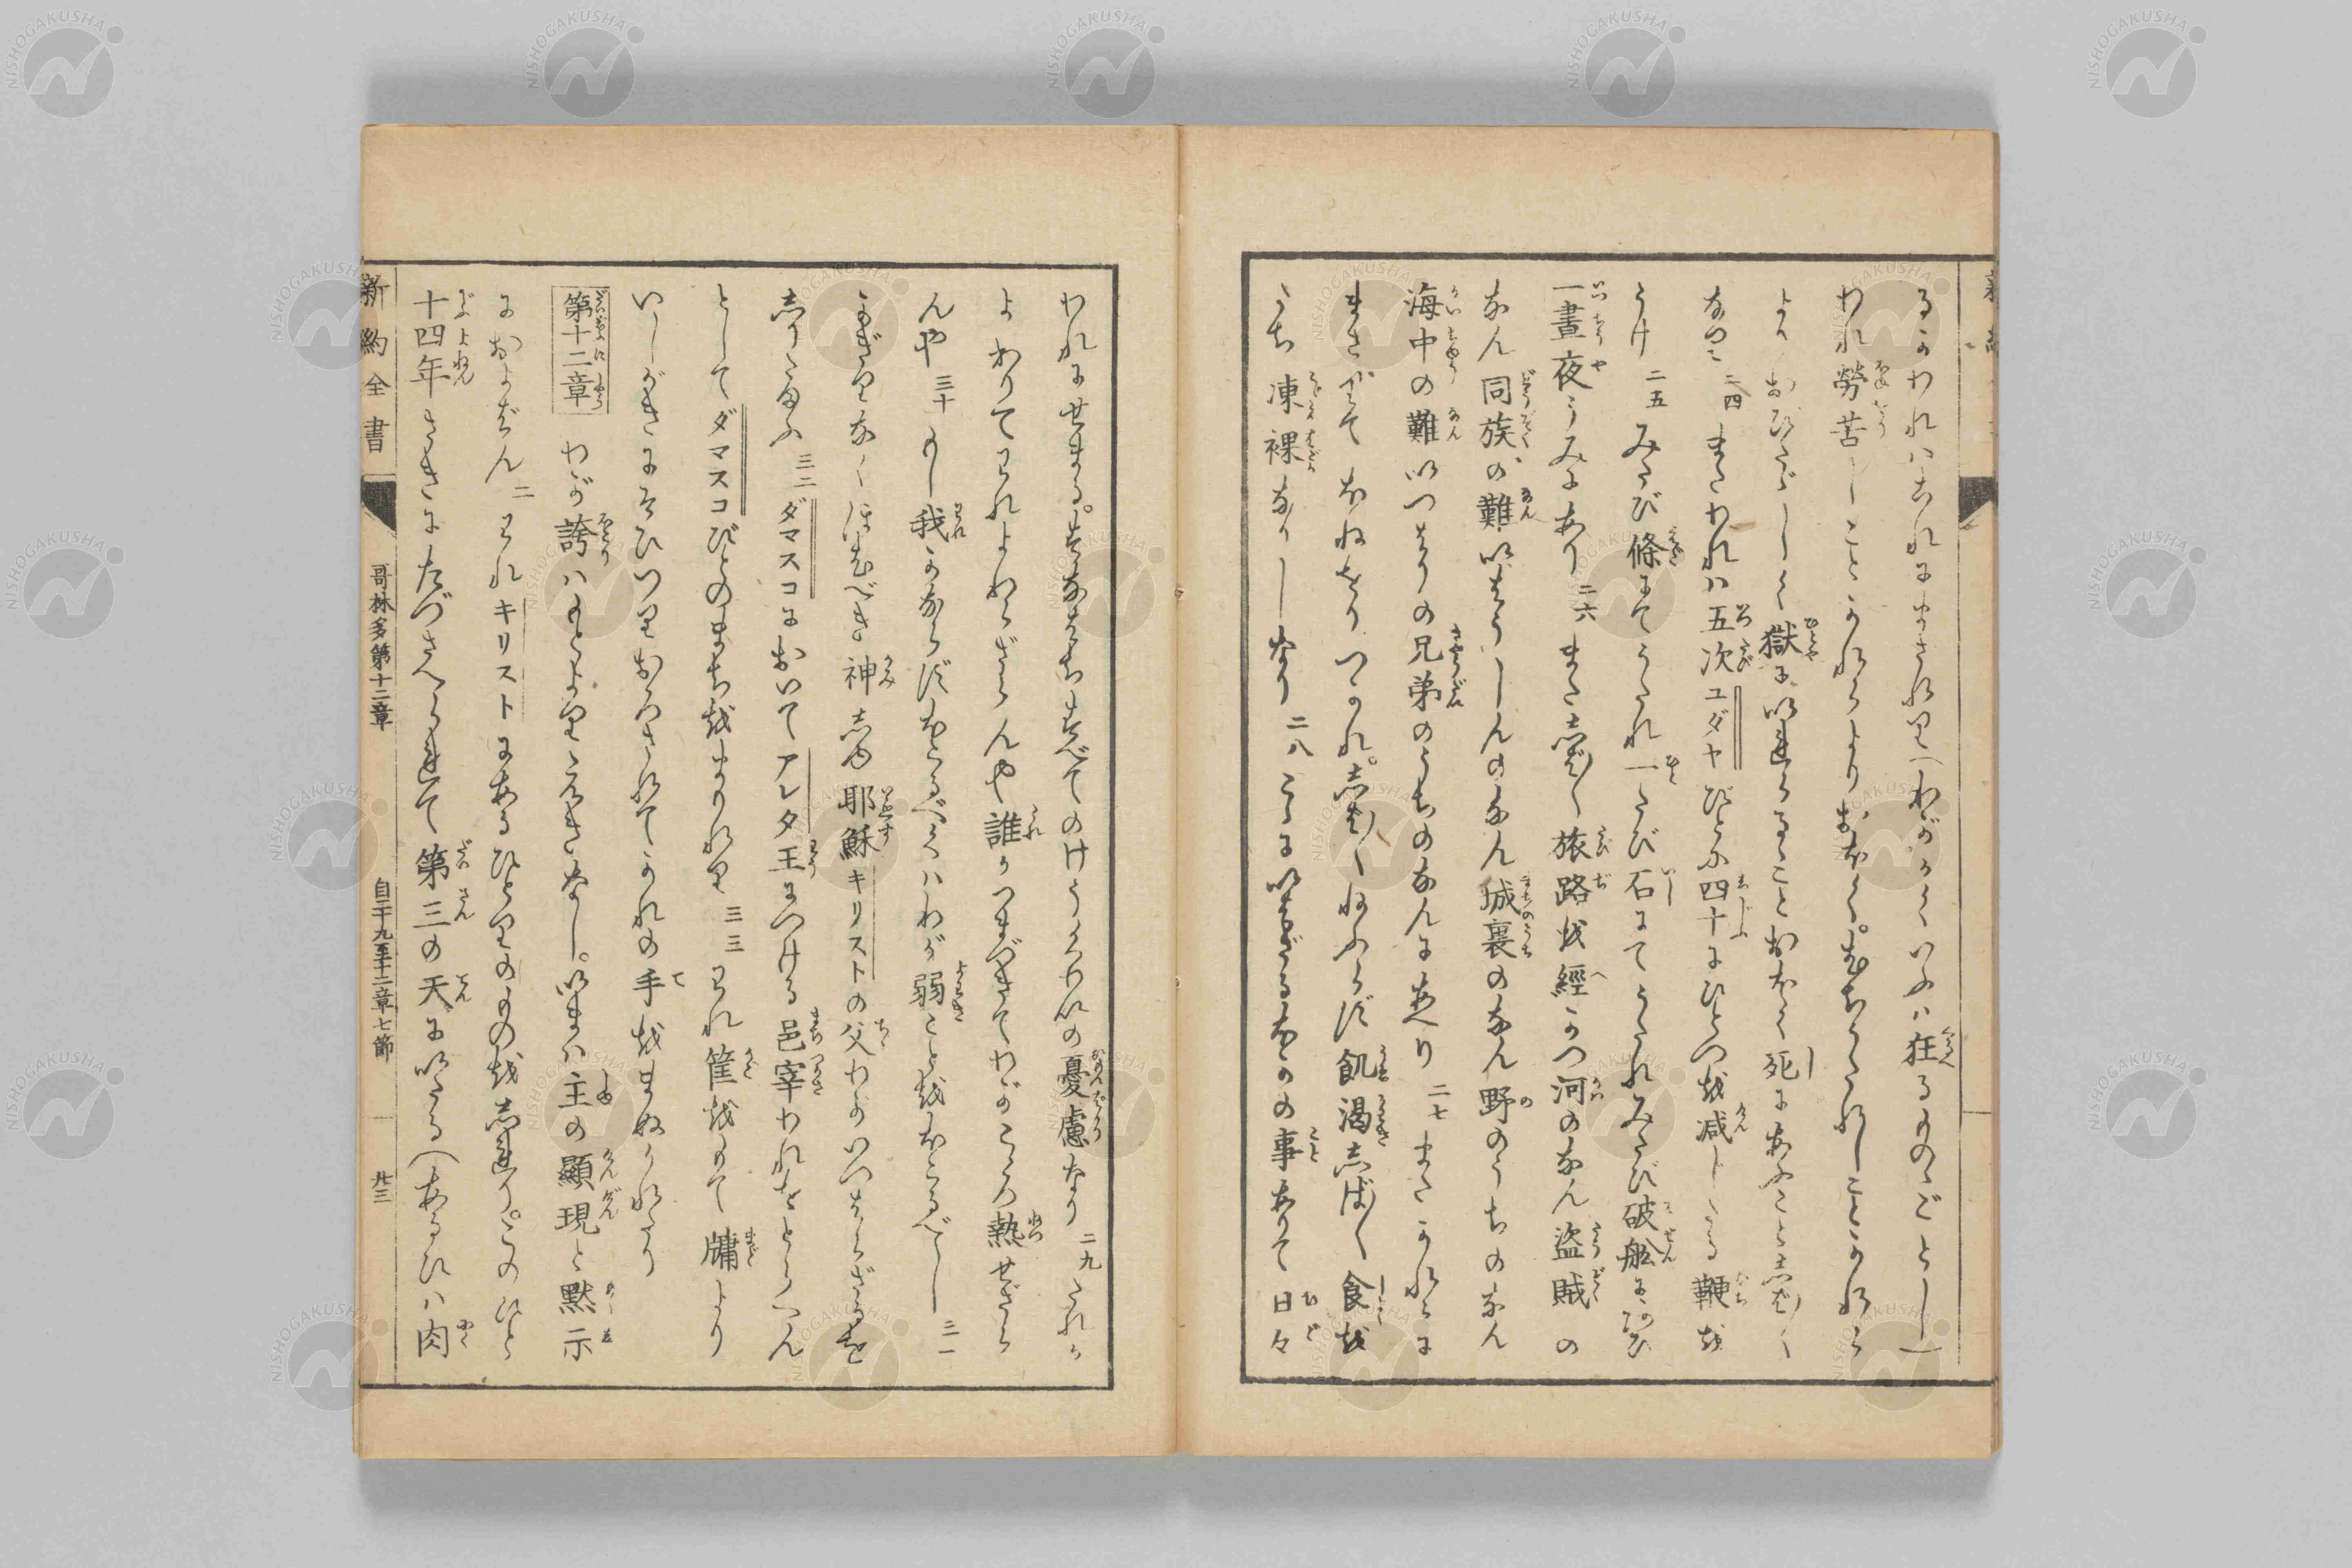 るかわれハ𛂌れにまされり(わがかくいふハ狂るものゝごとし)
われ勞苦しことかれらよりおほく。むちうたれしことかれら
よりおびたゞしく獄にいれらるゝことおほく死にあふことしば〳〵
なりき 二四 またわれハ五次ユダヤびとに四十にひとつを减じたる鞭を
うけ 二五 みたび條にてうたれ一たび石にてうたれみたび破船にあひ
一晝夜うみにあり 二六 またしば〳〵旅路を經かつ河のなん盗賊の
なん同族の難いはうじんのなん城裏のなん野のうちのなん
海中の難いつはりの兄弟のうちのなんにあへり 二七 またかれらに
まさりてほねをりつかれ。しば〳〵ねふらず飢渇しば〳〵食を
たち凍裸なりしなり 二八 こゝにいはざるほかの事ありて日々
われにせまる。すなはちすべてのけうくわいの憂慮なり 二九 たれか
よわりてわれよわらざらんや誰かつまづきてわがこゝろ熱せざら
んや 三十 もし我かならずほこるべくハわが弱ことをほこるべし 三一
かぎりなくほむべき神しゆ耶穌キリストの父わがいつはらざるを
しりたまふ 三二 ダマスコにおいてアレタ王につける邑宰われをとらへん
としてダマスコびとのまちをまもれり 三三 われ筐をもて牗より
いしがきにそひつりおろされてかれの手をまぬかれたり
第十二章 わが誇ハもとよりえきなし。いまハ主の顯現と黙示
におよばん 二 われキリストにあるひとりのものをしれり。このひと
十四年さきにたづさへられて第三の天にいたる(あるひハ肉
新約全書
哥林多第十二章
自十九至十二章七節
廿三